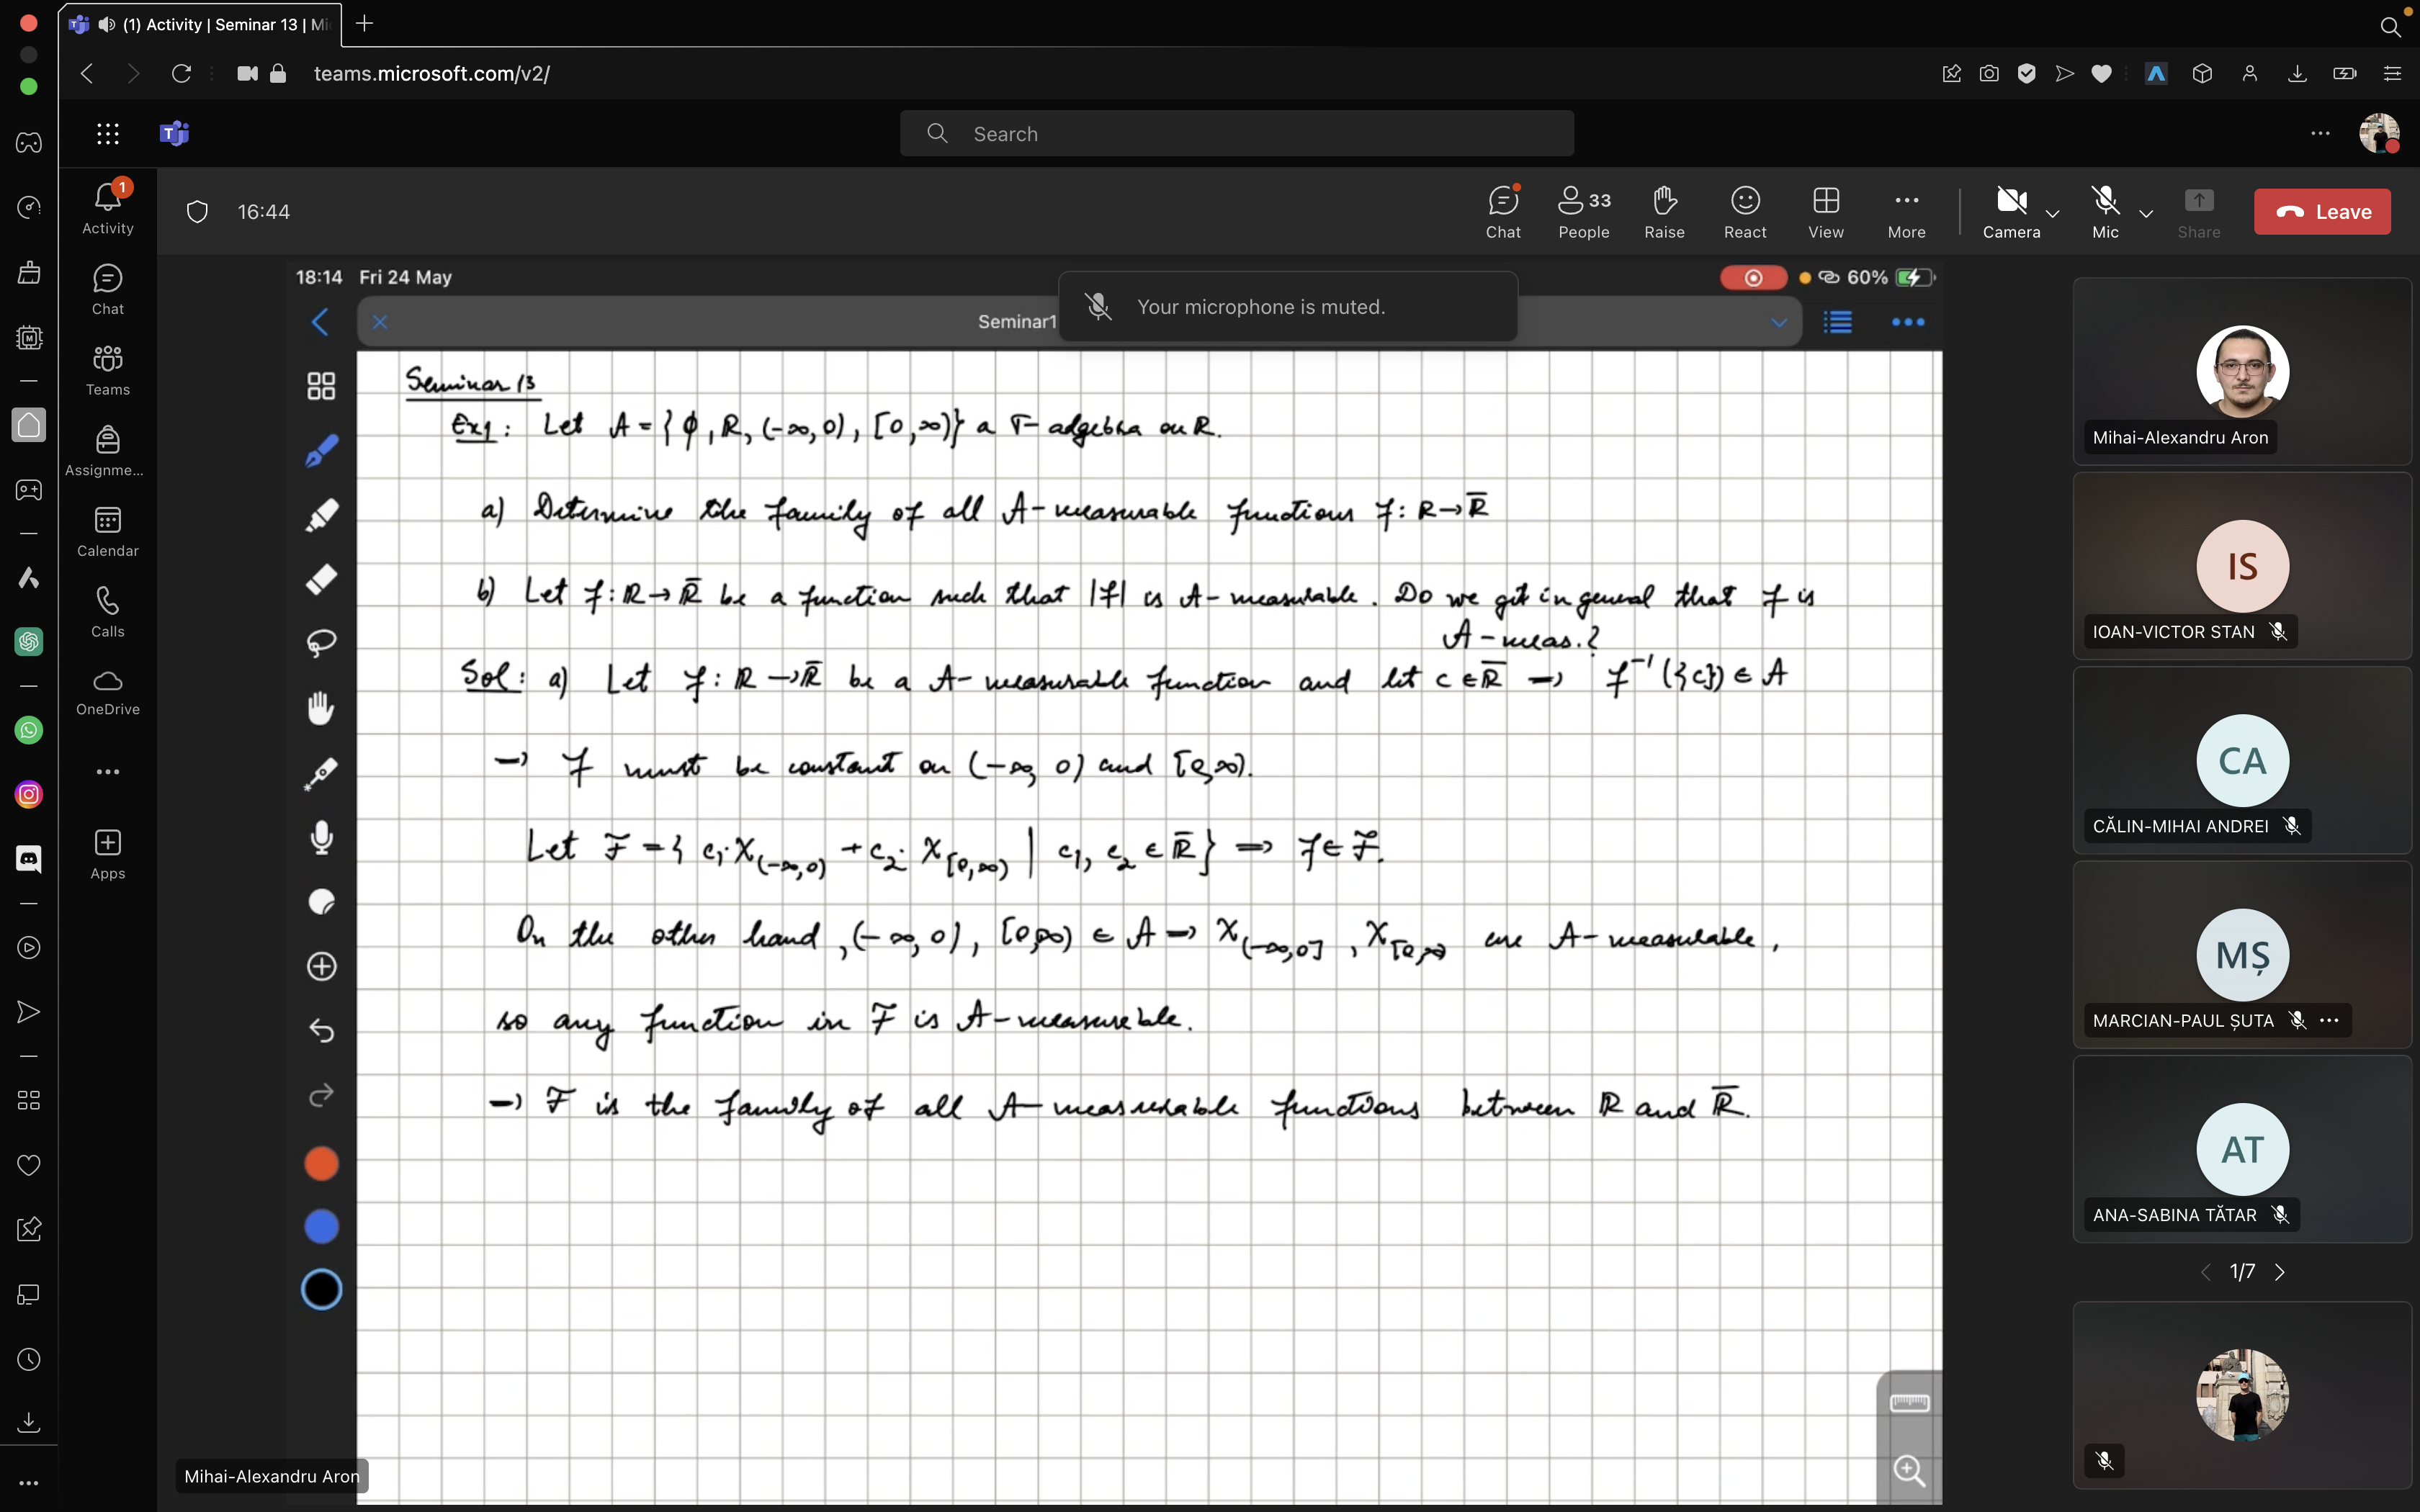 (1) Activity | Seminar 13 | Mi
teams.microsoft.com/v2/
Search
1
Activity
Chat
Teams
Assignme...
Calendar
Calls
OneDrive
Apps
16:44
Chat
33
People
Raise
React
View
More
Camera
Mic
Share
Leave
18:14 Fri 24 May
60%
Your microphone is muted.
Seminar1
Seminar 13
Ex1: Let A = {∅, R, (-∞, 0), [0, ∞)} a σ-algebra on R.
a) Determine the family of all A-measurable functions f: R→R̅
b) Let f: R→R̅ be a function such that |f| is A-measurable. Do we get in general that f is
A-meas.?
Sol: a) Let f: R→R̅ be a A-measurable function and let c∈R̅ ⇒ f⁻¹({c}) ∈ A
⇒ f must be constant on (-∞, 0) and [0,∞).
Let F = { c₁·χ(-∞,0) + c₂·χ[0,∞) | c₁, c₂ ∈ R̅ } ⇒ f∈F.
On the other hand, (-∞, 0), [0,∞) ∈ A ⇒ χ(-∞,0], χ[0,∞) are A-measurable,
so any function in F is A-measurable.
⇒ F is the family of all A-measurable functions between R and R̅.
Mihai-Alexandru Aron
Mihai-Alexandru Aron
IS
IOAN-VICTOR STAN
CA
CĂLIN-MIHAI ANDREI
MȘ
MARCIAN-PAUL ȘUTA
AT
ANA-SABINA TĂTAR
1/7